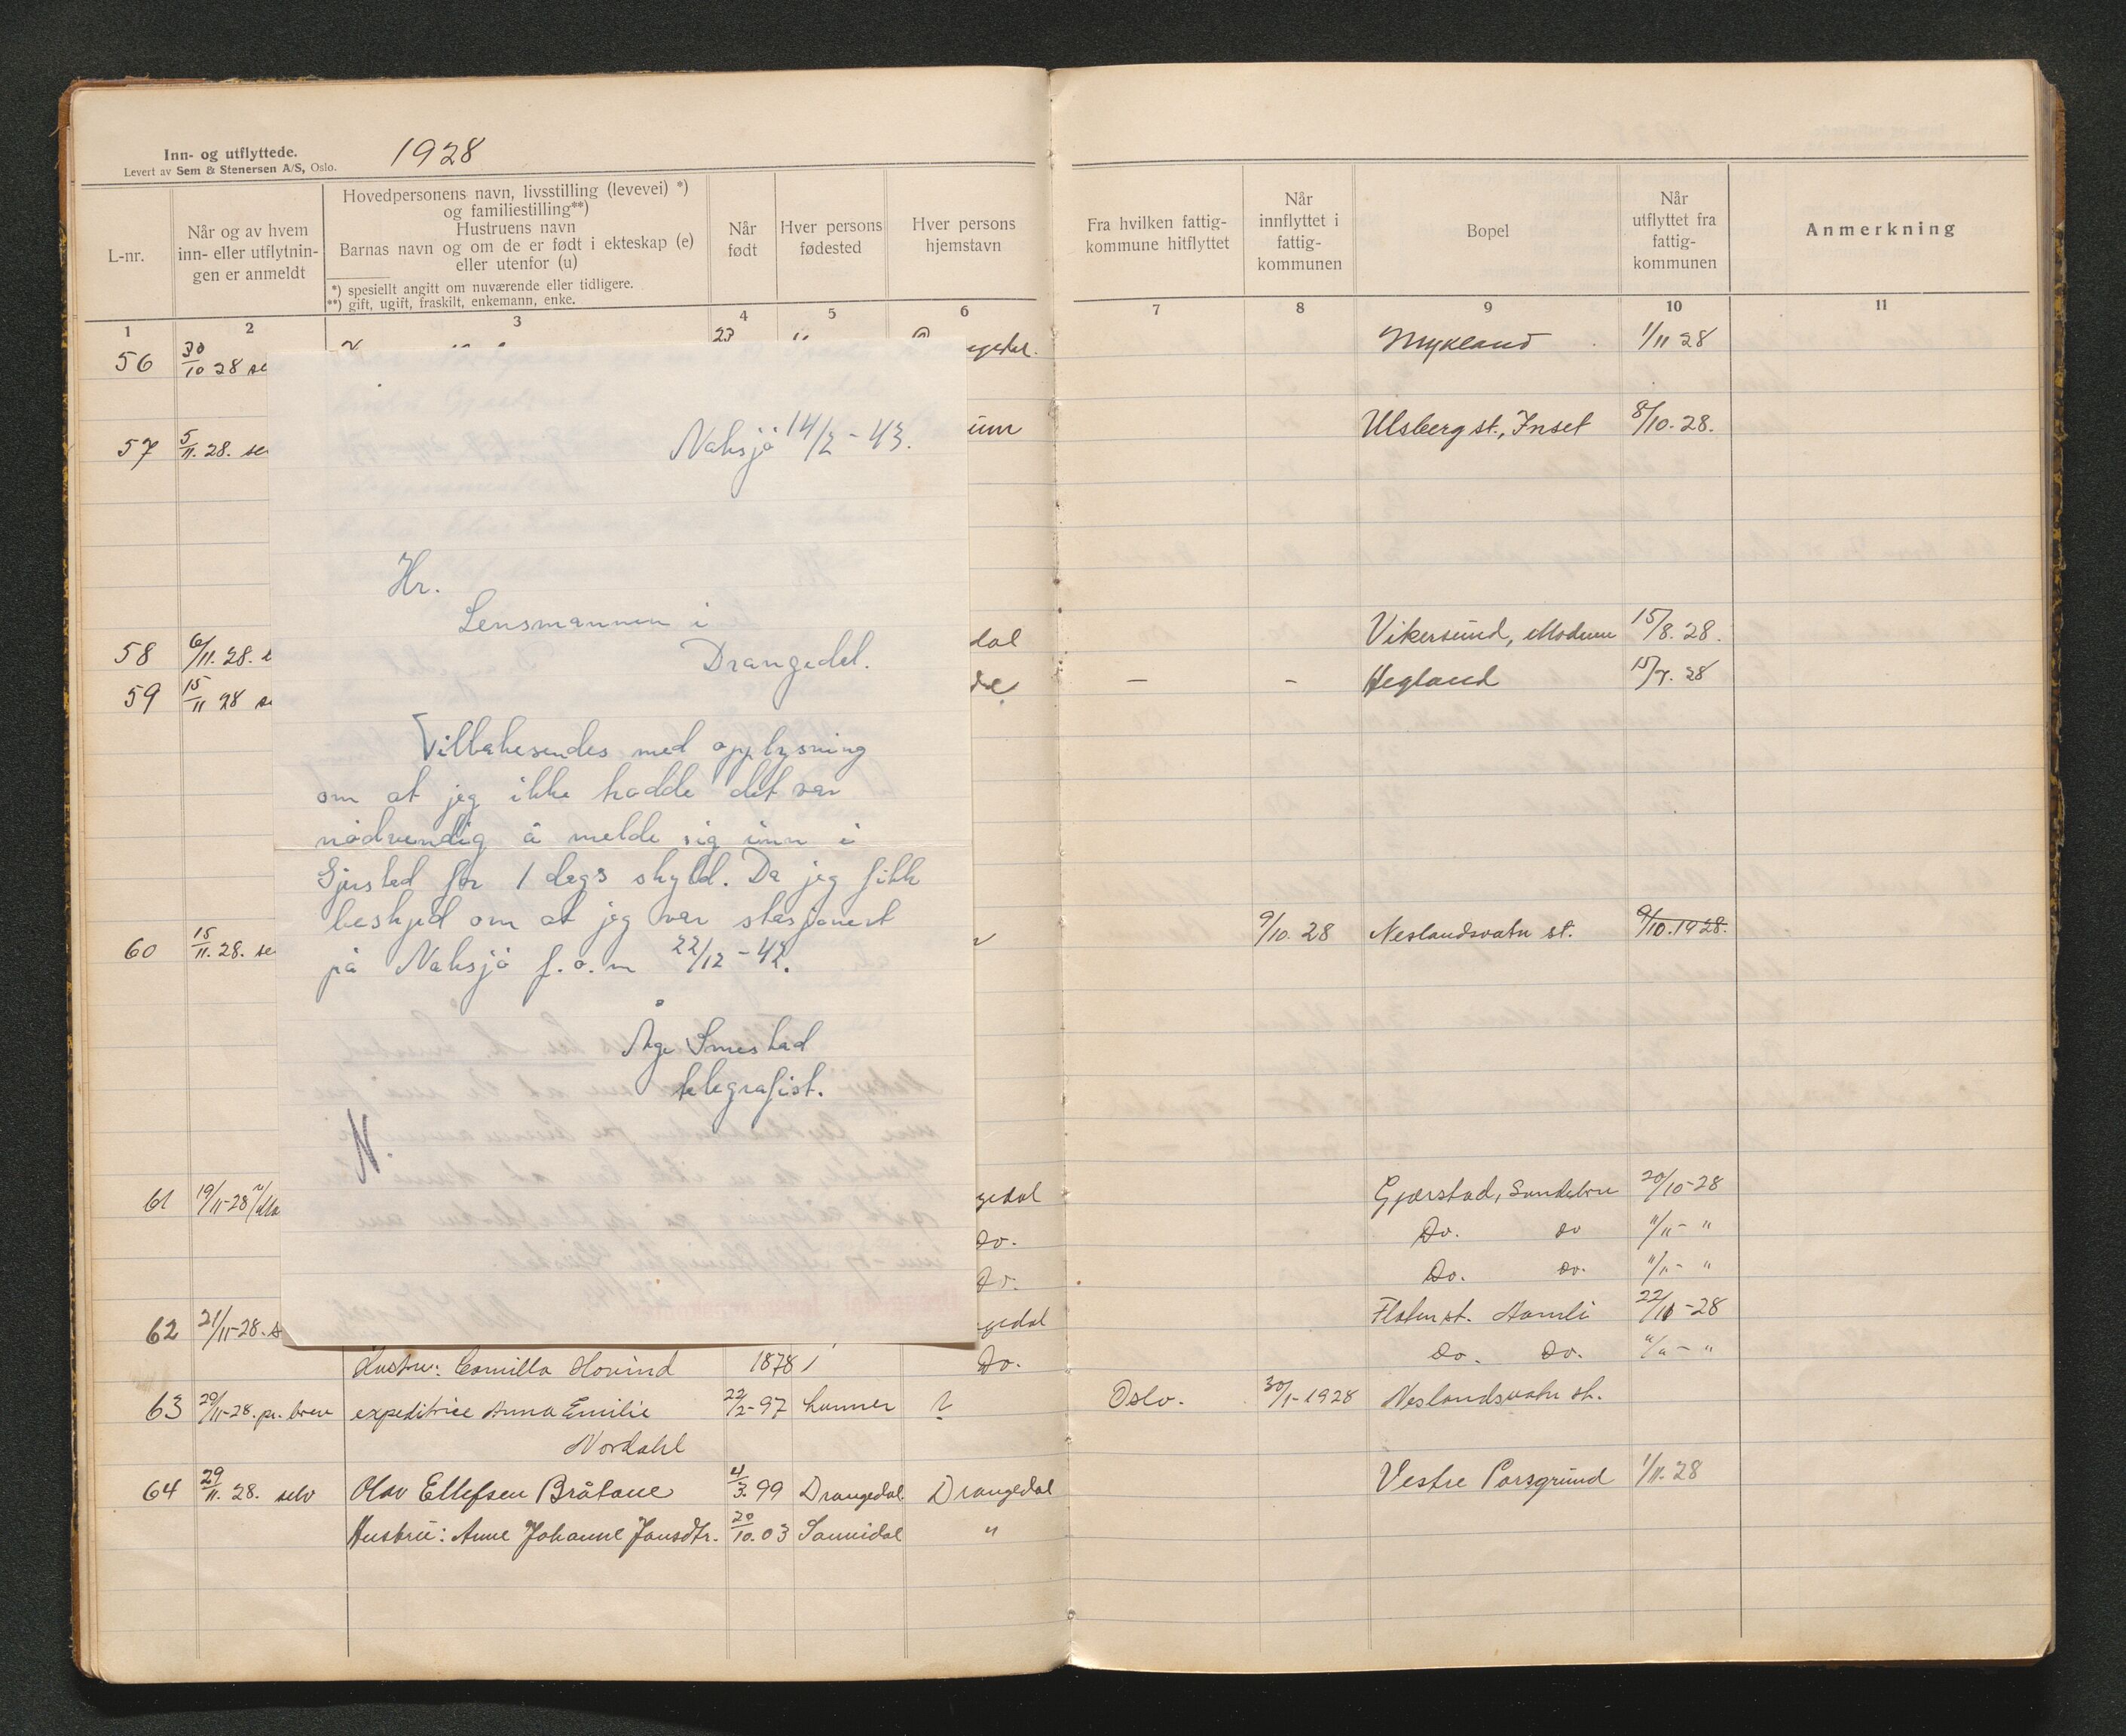 Inn- og utflyttede.
Levert av Sem & Stenersen A/S, Oslo.
1928
L-nr.
Når og av hvem
inn- eller utflytnin-
gen er anmeldt
Hovedpersonens navn, livsstilling (levevei) *)
og familiestilling**)
Hustruens navn
Barnas navn og om de er født i ekteskap (e)
eller utenfor (u)
*) spesiellt angitt om nuværende eller tidligere.
**) gift, ugift, fraskilt, enkemann, enke.
Når
født
Hver persons
fødested
Hver persons
hjemstavn
1 2 3 4 5 6
56 30/10 28 se
57 5/11. 28. se
um
58 6/11. 28.
dal
59 15/11 28 se
60 15/11. 28. se
61 19/11-28
gedal
do.
do.
62 21/11-28. s
gedal
Hustru: Camilla Hovind 1878 do.
63 20/11-28. pr. brev expeditrice Anna Emilie 22/2-97 Lunner ?
Nordahl
64 29/11. 28. selv Olav Ellefsen Bråtane 4/3.99 Drangedal Drangedal
Hustru: Anne Johanne Jansdtr. 20/10.03 Sannidal "
Naksjö 14/2-43.
Hr.
Lensmannen i
Drangedal.
Tilbakesendes med opplysning
om at jeg ikke trodde det var
nödvendig å melde sig inn i
Gjerstad for 1 dags skyld. Da jeg fikk
beskjed om at jeg var stasjonert
på Naksjö f.o.m 22/12-42.
Åge Smestad
telegrafist.
N.
Fra hvilken fattig-
kommune hitflyttet
Når
innflyttet i
fattig-
kommunen
Bopel
Når
utflyttet fra
fattig-
kommunen
Anmerkning
7 8 9 10 11
Mykland 1/11 28
Ulsberg st., Inset 8/10. 28.
Vikersund, Modum 15/8. 28.
— - Hegland 15/7. 28
9/10. 28 Neslandsvatn st. 9/10. 1928.
Gjerstad, Sundebru 20/10-28
Do. do "/11- "
Do. do. "/11- "
Flaten st. Åamli 22/10-28
do. do. "/11- "
Oslo. 30/1-1928 Neslandsvatn st.
Vestre Porsgrund 1/11. 28